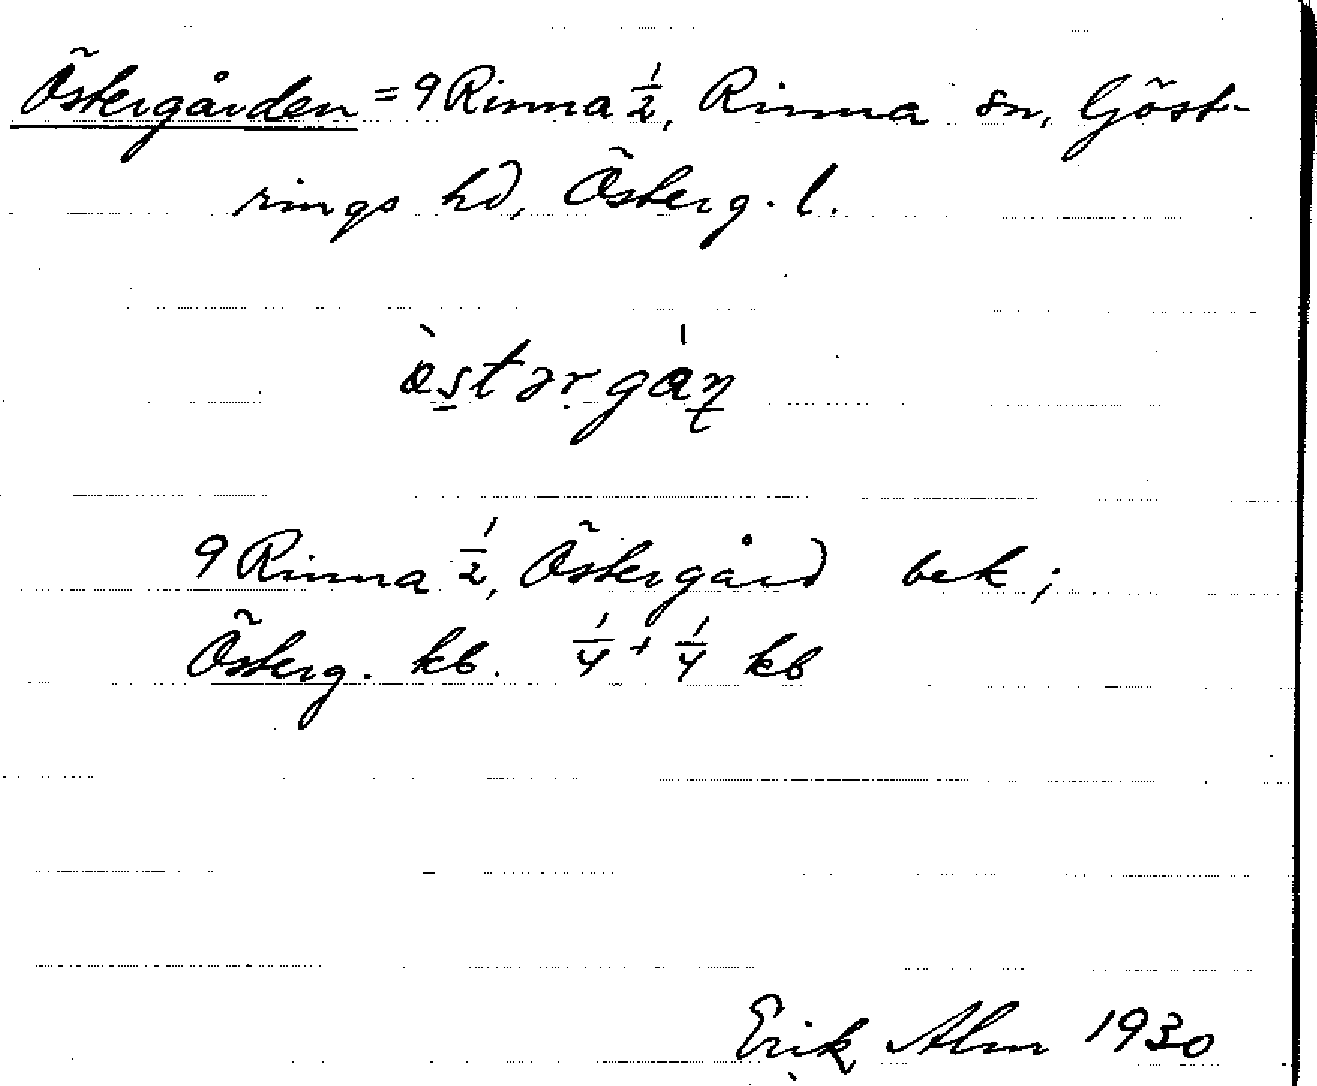 Östergården = 9 Rinna ½, Rinna sn, Göst-
rings hd, Österg. l.
östərgȧn
9 Rinna ½, Östergård bek;
Österg. kb. ¼ + ¼ kb
Erik Alm 1930